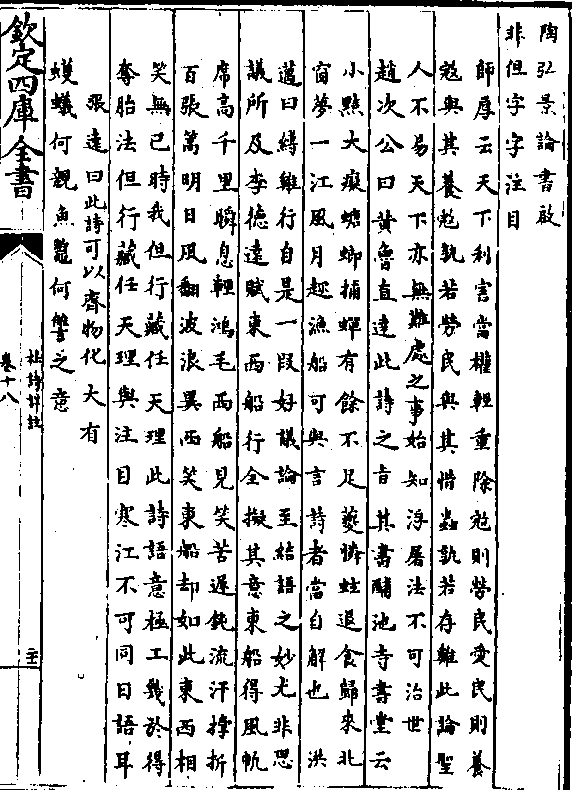 陶弘景論書啟
非但字字注目
師厚云天下利害當權輕重除寇則勞民愛民則養
寇與其養寇孰若勞民與其惜蟲孰若存雞此論聖
人不易天下亦無難處之事始知浮屠法不可治世
趙次公曰黃魯直達此詩之旨其書酺池寺書堂云
小黠大癡螗螂捕蟬有餘不足夔憐蚿退食歸來北
窗夢一江風月趂漁船可與言詩者當自解也 洪
邁曰縛雞行自是一段好議論至結語之妙尤非思
議所及李德遠賦東西船行全擬其意東船得風帆
席高千里瞬息輕鴻毛西船見笑苦遲鈍流汗撐折
百張篙明日風翻波浪異西笑東船却如此東西相
笑無已時我但行藏任天理此詩語意極工幾於得
奪胎法但行藏任天理與注目寒江不可同日語耳
張遠曰此詩可以齊物化大有
螻蟻何親魚鼈何讐之意
欽定四庫全書
杜詩詳註
卷十八